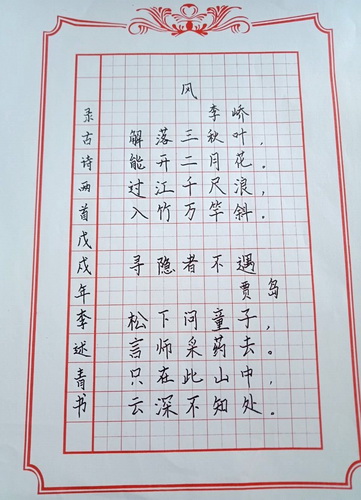 风
李峤
解落三秋叶，
能开二月花。
过江千尺浪，
入竹万竿斜。
寻隐者不遇
贾岛
松下问童子，
言师采药去。
只在此山中，
云深不知处。
录古诗两首戊戌年李述青书